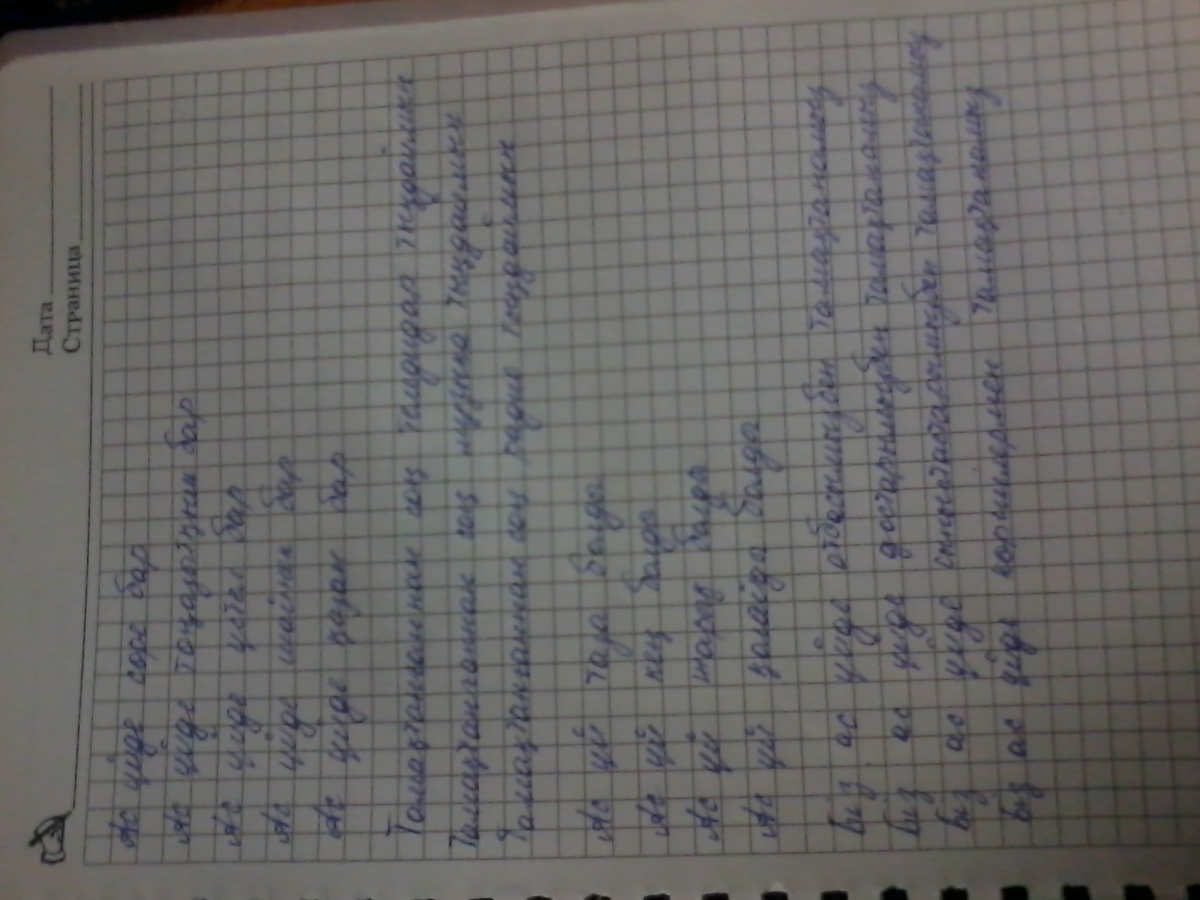 Дата
Страница
Ас үйде сөре бар
Ас үйде тоңазотқыш бар
Ас үйде үстел бар
Ас үйде шәйнек бар
Ас үйде қазан бар
Тамақтанғаннан соң теледидар тыңдаймын
Тамақтанғаннан соң музыка тыңдаймын
Тамақтанғаннан соң радио тыңдаймын
Ас үй таза болды
Ас үй кең болды
Ас үй жарық болды
Ас үй болды
Біз ас үйде отбасымызбен тамақтанамыз
Біз ас үйде достарымызбен тамақтанамыз
Біз ас үйде тамақтанамыз
Біз ас үйде көршілермен тамақтанамыз